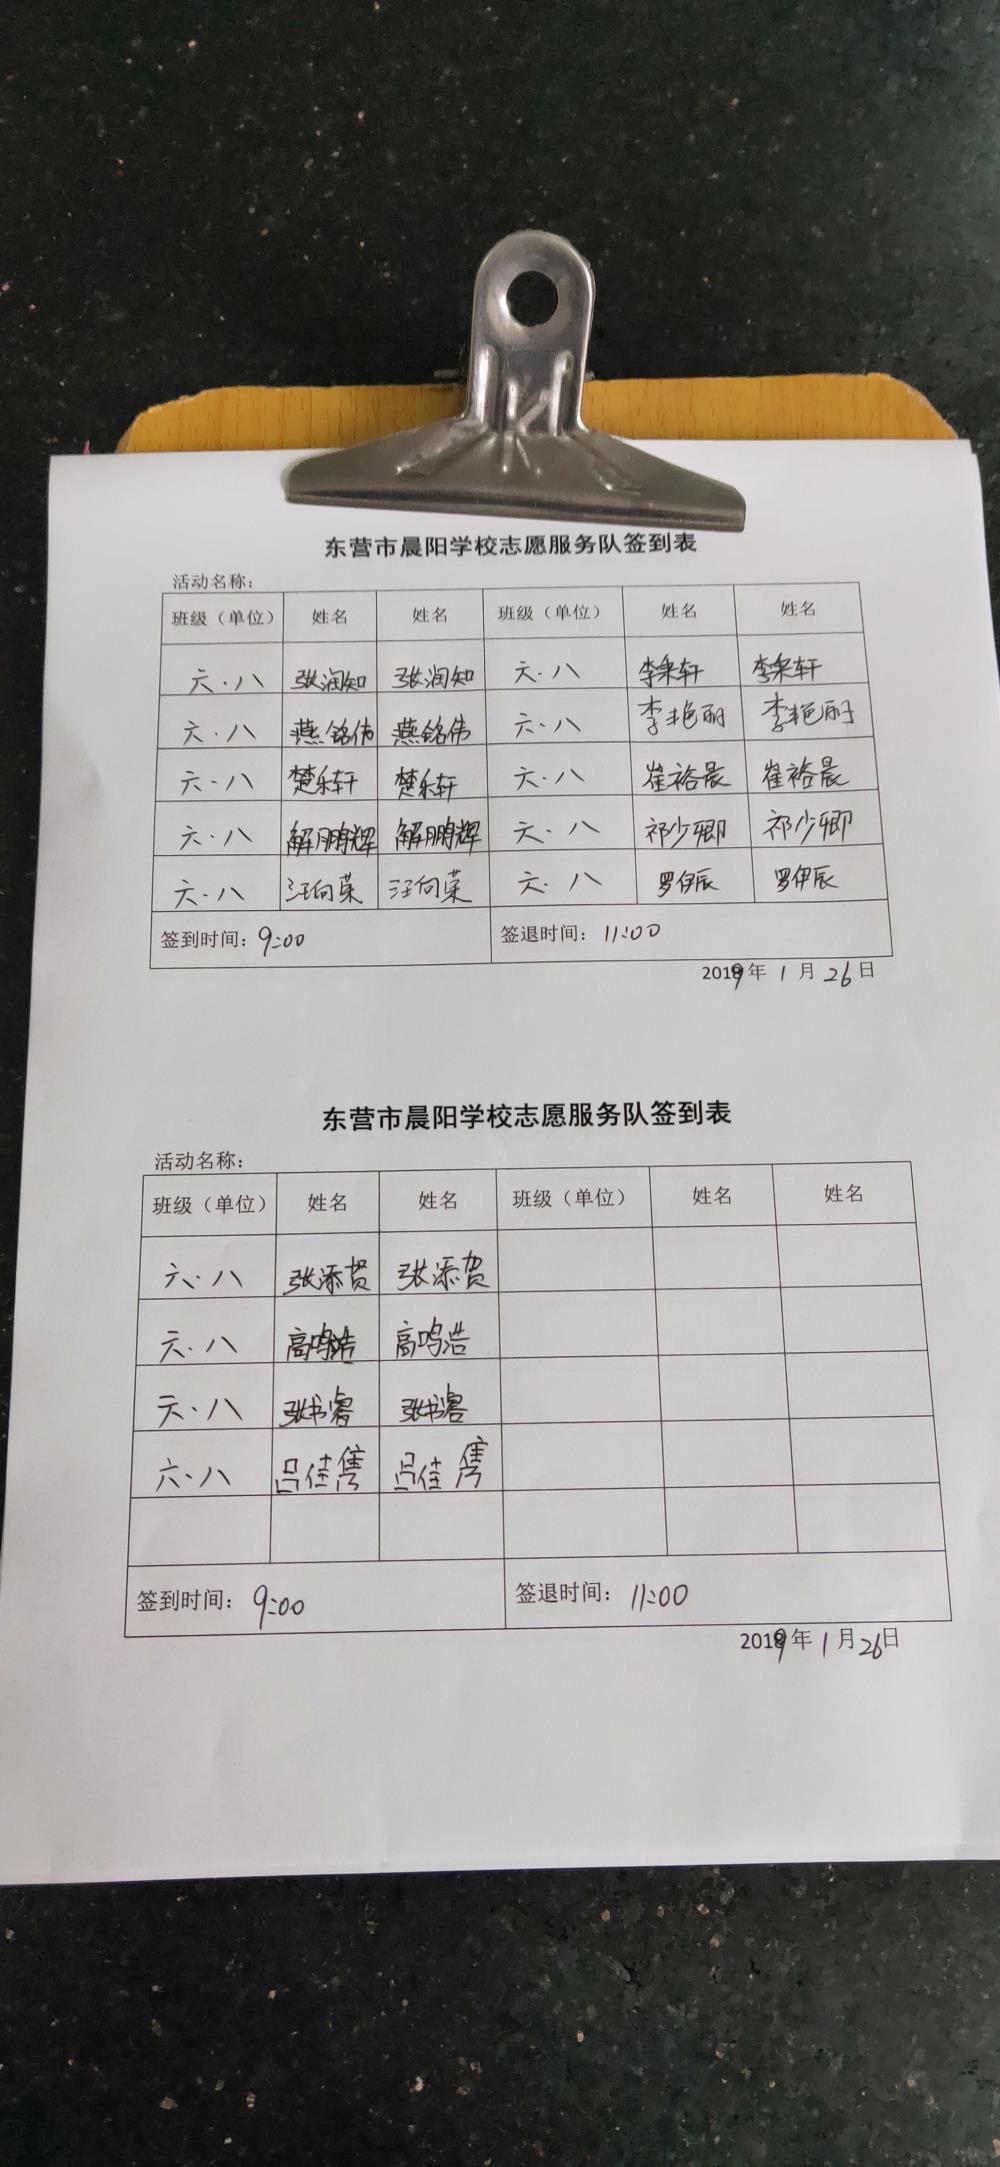 东营市晨阳学校志愿服务队签到表
活动名称：
班级（单位） 姓名 姓名 班级（单位） 姓名 姓名
六.八 张润知 张润知 六.八 李秉轩 李秉轩
六.八 燕铭伟 燕铭伟 六.八 李艳丽 李艳丽
六.八 楚乐轩 楚乐轩 六.八 崔裕晨 崔裕晨
六.八 解鹏辉 解鹏辉 六.八 祁少卿 祁少卿
六.八 汪向荣 汪向荣 六.八 罗伊辰 罗伊辰
签到时间：9:00 签退时间：11:00
2019年1月26日
东营市晨阳学校志愿服务队签到表
活动名称：
班级（单位） 姓名 姓名 班级（单位） 姓名 姓名
六.八 张添贺 张添贺
六.八 高鸣浩 高鸣浩
六.八 张书睿 张书睿
六.八 吕佳隽 吕佳隽
签到时间：9:00 签退时间：11:00
2019年1月26日